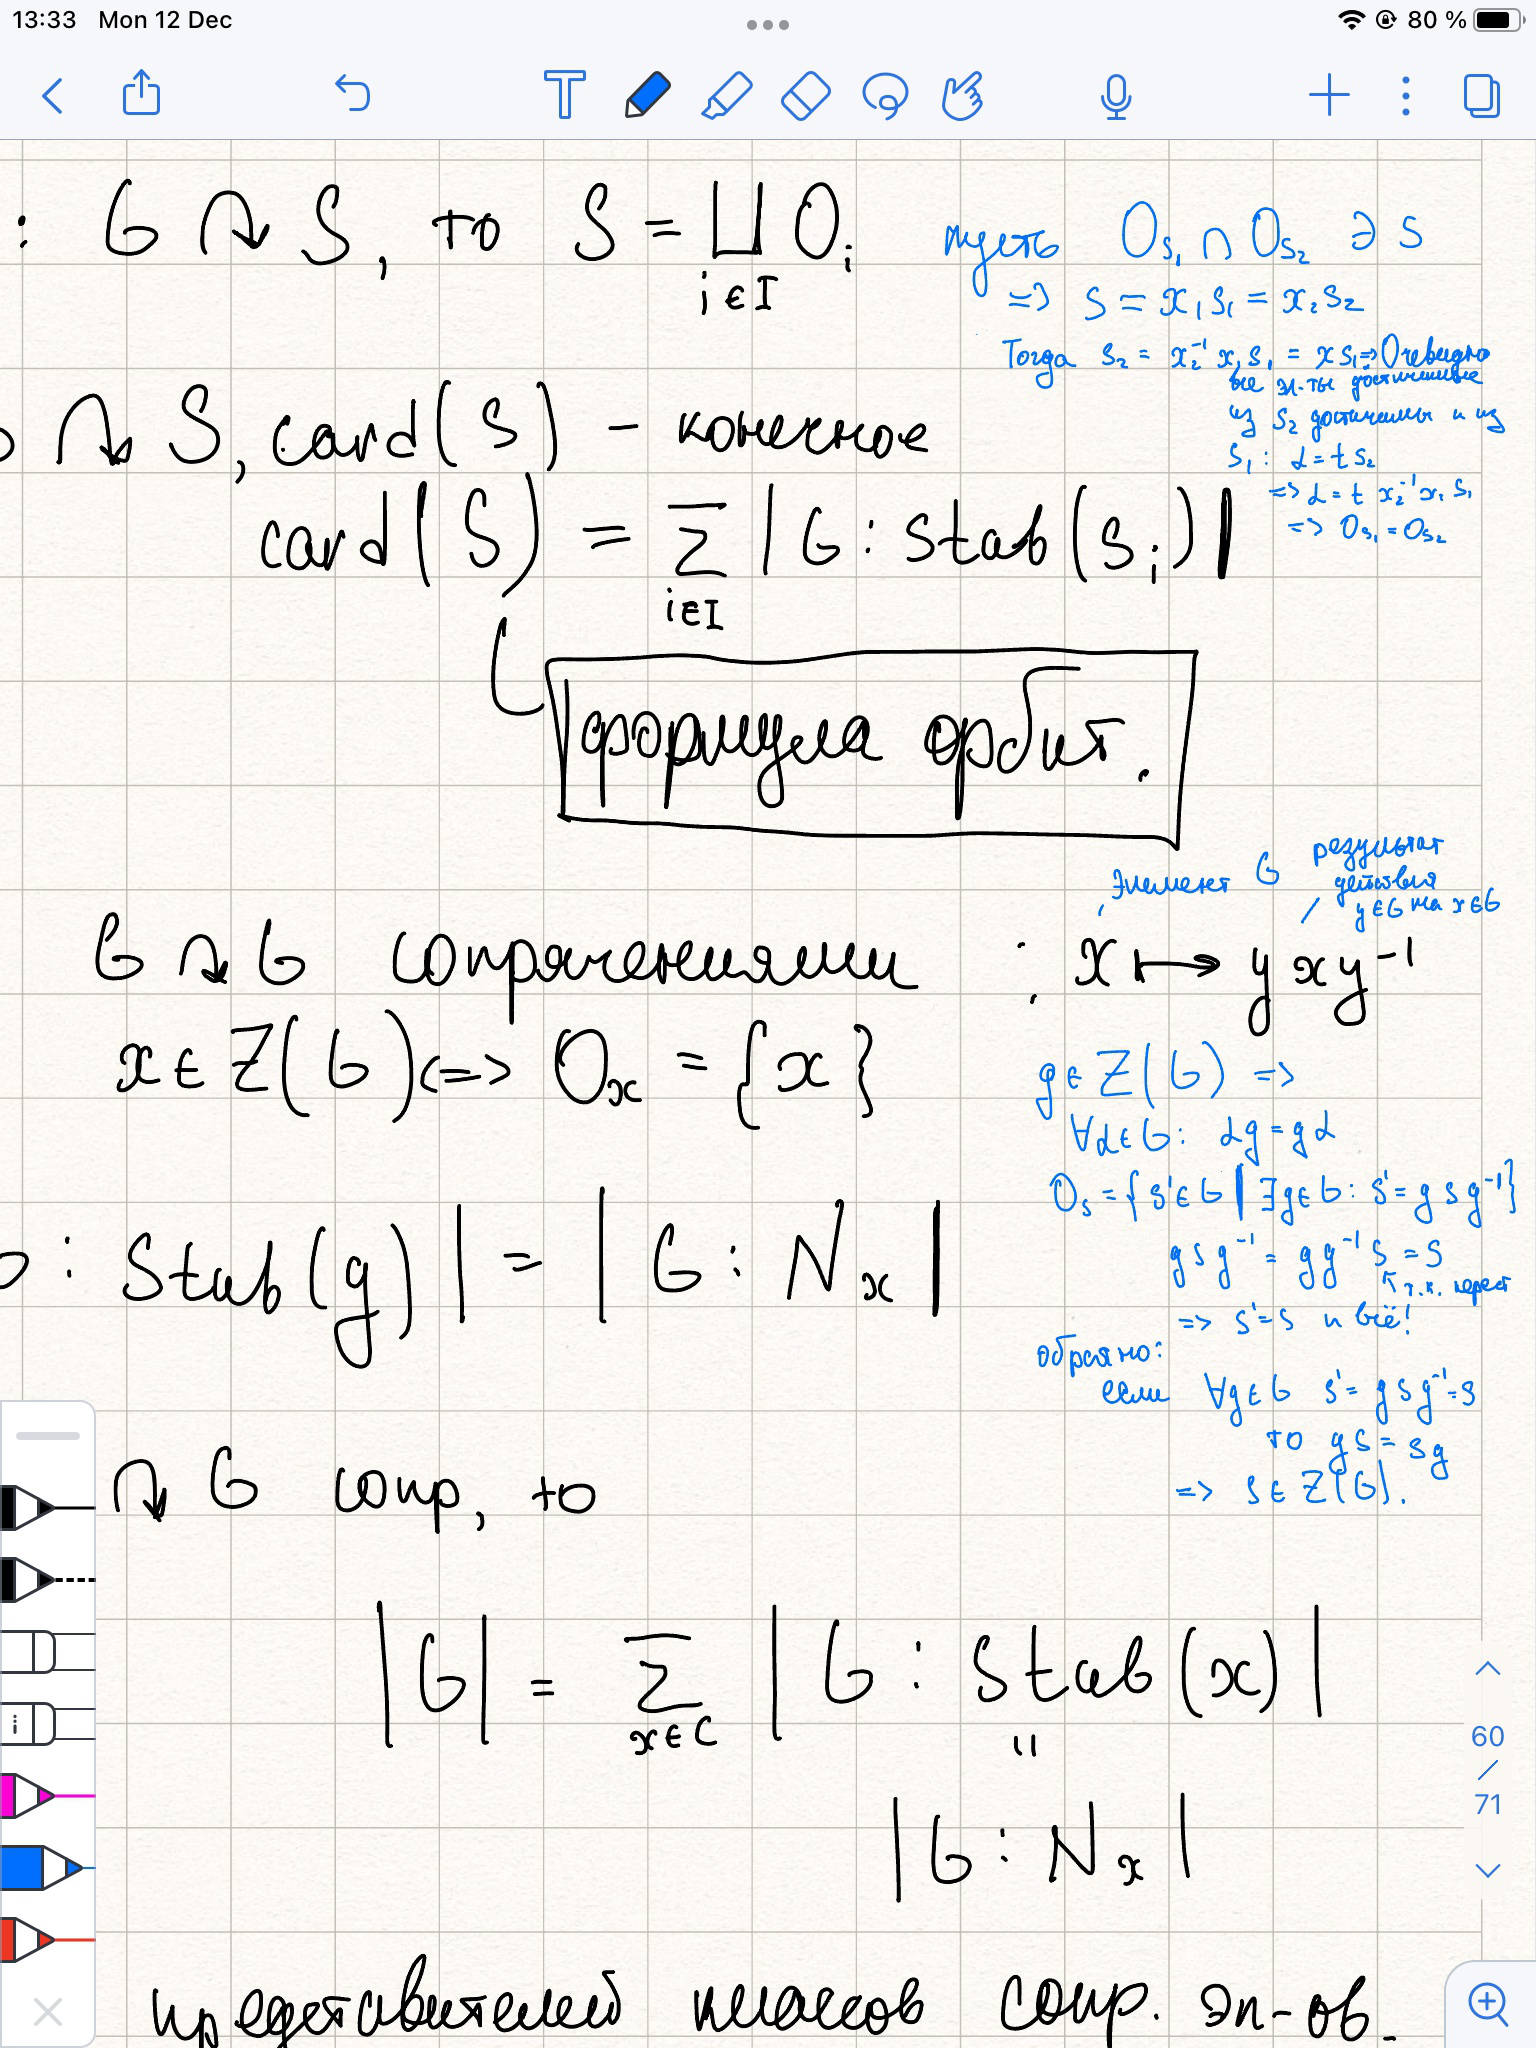 13:33 Mon 12 Dec
80 %
: G ↷ S, то S = ⨆ O_i
i ∈ I
пусть O_{s_1} ∩ O_{s_2} ∋ s
=> s = x_1 s_1 = x_2 s_2
Тогда s_2 = x_2^{-1} x_1 s_1 = x s_1 => Очевидно
все эл-ты достижимые
из s_2 достижимы и из
s_1 : α = t s_2
=> α = t x_2^{-1} x_1 s_1
=> O_{s_1} = O_{s_2}
↷ S, card(S) – конечное
card(S) = Σ | G : Stab(s_i) |
i ∈ I
формула орбит.
Элемент G
результат
действия
y ∈ G на x ∈ G
G ↷ G сопряжениями : x ↦ y x y^{-1}
x ∈ Z(G) <=> O_x = { x }
g ∈ Z(G) =>
∀α ∈ G : αg = gα
O_s = { s' ∈ G | ∃ g ∈ G : s' = g s g^{-1} }
g s g^{-1} = g g^{-1} s = s
↖ т.к. перест
=> s' = s и всё!
: Stab(g) | = | G : N_x |
обратно:
если ∀g ∈ G s' = g s g^{-1} = s
то gs = sg
=> s ∈ Z(G).
↷ G сопр, то
|G| = Σ | G : Stab(x) |
x ∈ C
"
| G : N_x |
представителей классов сопр. эл-ов.
60
/
71